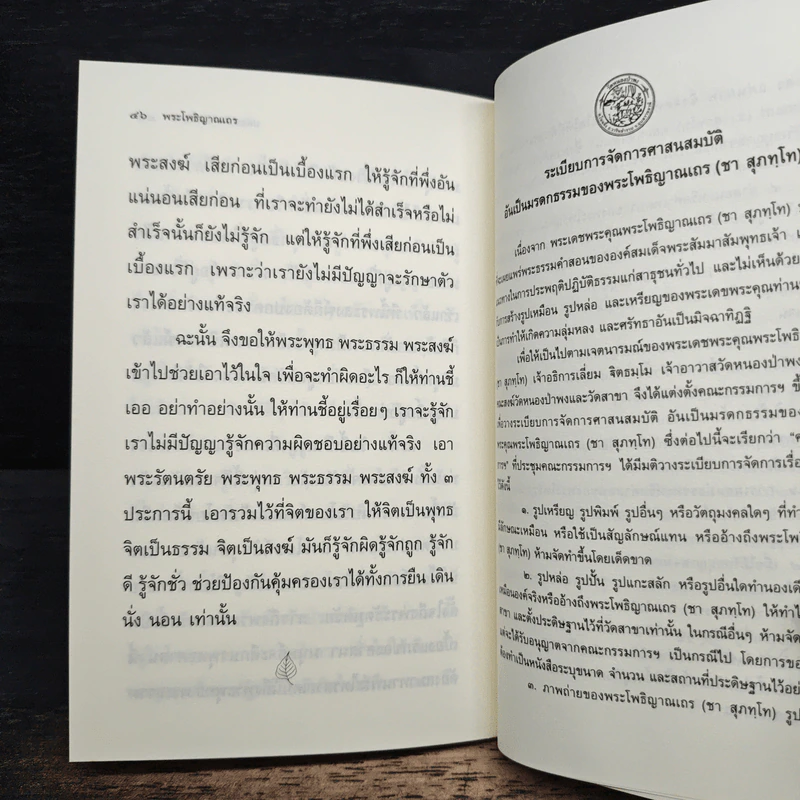 ๔๖ พระโพธิญาณเถร
พระสงฆ์ เสียก่อนเป็นเบื้องแรก ให้รู้จักที่พึ่งอัน
แน่นอนเสียก่อน ที่เราจะทำยังไม่ได้สำเร็จหรือไม่
สำเร็จนั้นก็ยังไม่รู้จัก แต่ให้รู้จักที่พึ่งเสียก่อนเป็น
เบื้องแรก เพราะว่าเรายังไม่มีปัญญาจะรักษาตัว
เราได้อย่างแท้จริง
ฉะนั้น จึงขอให้พระพุทธ พระธรรม พระสงฆ์
เข้าไปช่วยเอาไว้ในใจ เพื่อจะทำผิดอะไร ก็ให้ท่านชี้
เออ อย่าทำอย่างนั้น ให้ท่านชี้อยู่เรื่อยๆ เราจะรู้จัก
เราไม่มีปัญญารู้จักความผิดชอบอย่างแท้จริง เอา
พระรัตนตรัย พระพุทธ พระธรรม พระสงฆ์ ทั้ง ๓
ประการนี้ เอารวมไว้ที่จิตของเรา ให้จิตเป็นพุทธ
จิตเป็นธรรม จิตเป็นสงฆ์ มันก็รู้จักผิดรู้จักถูก รู้จัก
ดี รู้จักชั่ว ช่วยป้องกันคุ้มครองเราได้ทั้งการยืน เดิน
นั่ง นอน เท่านั้น
ระเบียบการจัดการศาสนสมบัติ
อันเป็นมรดกธรรมของพระโพธิญาณเถร (ชา สุภทฺโท)
เนื่องจาก พระเดชพระคุณพระโพธิญาณเถร (ชา สุภทฺโท)
จะเผยแพร่พระธรรมคำสอนขององค์สมเด็จพระสัมมาสัมพุทธเจ้า
แนวทางในการประพฤติปฏิบัติธรรมแก่สาธุชนทั่วไป และไม่เห็นด้วย
กับการสร้างรูปเหมือน รูปหล่อ และเหรียญของพระเดชพระคุณท่าน
เป็นการทำให้เกิดความลุ่มหลง และศรัทธาอันเป็นมิจฉาทิฏฐิ
เพื่อให้เป็นไปตามเจตนารมณ์ของพระเดชพระคุณพระโพธิ
(ชา สุภทฺโท) เจ้าอธิการเลี่ยม ฐิตธมฺโม เจ้าอาวาสวัดหนองป่าพง
คณะสงฆ์วัดหนองป่าพงและวัดสาขา จึงได้แต่งตั้งคณะกรรมการฯ ขึ้
เพื่อวางระเบียบการจัดการศาสนสมบัติ อันเป็นมรดกธรรมของ
พระคุณพระโพธิญาณเถร (ชา สุภทฺโท) ซึ่งต่อไปนี้จะเรียกว่า
การฯ" ที่ประชุมคณะกรรมการฯ ได้มีมติวางระเบียบการจัดการเรื่อ
ไว้ดังนี้
๑. รูปเหรียญ รูปพิมพ์ รูปอื่นๆ หรือวัตถุมงคลใดๆ ที่ทำ
ลักษณะเหมือน หรือใช้เป็นสัญลักษณ์แทน หรืออ้างถึงพระโพ
(ชา สุภทฺโท) ห้ามจัดทำขึ้นโดยเด็ดขาด
๒. รูปหล่อ รูปปั้น รูปแกะสลัก หรือรูปอื่นใดทำนองเดี
เหมือนองค์จริงหรืออ้างถึงพระโพธิญาณเถร (ชา สุภทฺโท) ให้ทำไ
สาขา และตั้งประดิษฐานไว้ที่วัดสาขาเท่านั้น ในกรณีอื่นๆ ห้ามจัด
แต่จะได้รับอนุญาตจากคณะกรรมการฯ เป็นกรณีไป โดยการขอ
ต้องทำเป็นหนังสือระบุขนาด จำนวน และสถานที่ประดิษฐานไว้อย่
๓. ภาพถ่ายของพระโพธิญาณเถร (ชา สุภทฺโท) รูป